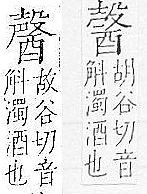 胡谷切音
斛濁酒也
故谷切音
斛濁酒也